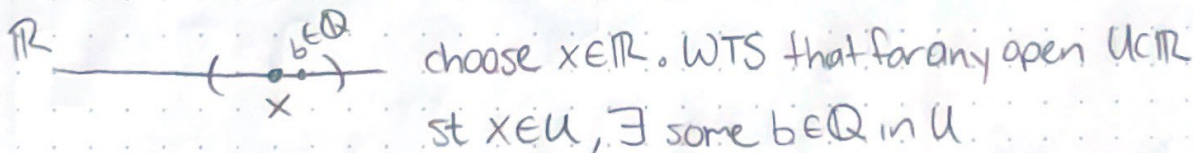 ℝ
b∈ℚ
x
choose x∈ℝ. WTS that for any open U⊂ℝ
st x∈U, ∃ some b∈ℚ in U.